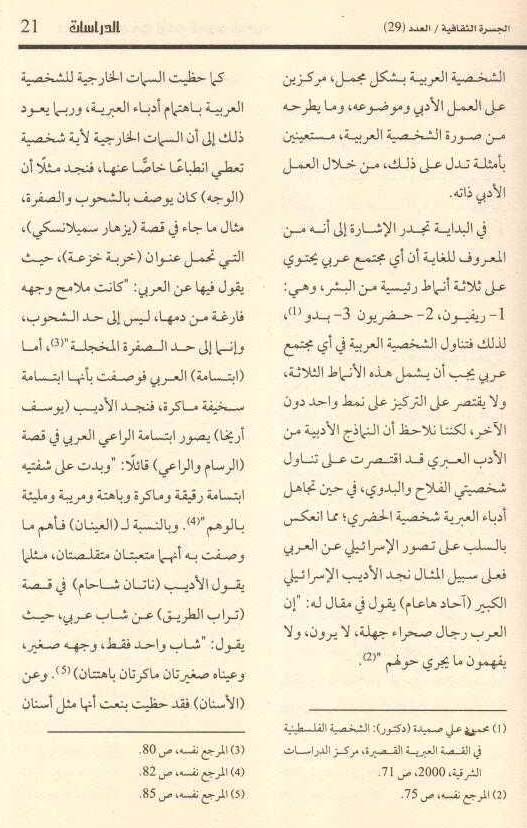 الجسرة الثقافية / العدد (29)
الدراسات 21
الشخصية العربية بشكل مجمل، مركزين
على العمل الأدبي وموضوعه، وما يطرحه
من صورة الشخصية العربية، مستعينين
بأمثلة تدل على ذلك، من خلال العمل
الأدبي ذاته.
في البداية تجدر الإشارة إلى أنه من
المعروف للغاية أن أي مجتمع عربي يحتوي
على ثلاثة أنماط رئيسية من البشر، وهي:
1- ريفيون، 2- حضريون 3- بدو (1)،
لذلك فتناول الشخصية العربية في أي مجتمع
عربي يجب أن يشمل هذه الأنماط الثلاثة،
ولا يقتصر على التركيز على نمط واحد دون
الآخر، لكننا نلاحظ أن النماذج الأدبية من
الأدب العبري قد اقتصرت على تناول
شخصيتي الفلاح والبدوي، في حين تجاهل
أدباء العبرية شخصية الحضري؛ مما انعكس
بالسلب على تصور الإسرائيلي عن العربي
فعلى سبيل المثال نجد الأديب الإسرائيلي
الكبير (آحاد هاعام) يقول في مقال له: "إن
العرب رجال صحراء جهلة، لا يرون، ولا
يفهمون ما يجري حولهم "(2).
(1) محمود علي صميدة (دكتور): الشخصية الفلسطينية
في القصة العبرية القصيرة، مركز الدراسات
الشرقية، 2000، ص 71.
(2) المرجع نفسه، ص 75.
كما حظيت السمات الخارجية للشخصية
العربية باهتمام أدباء العبرية، وربما يعود
ذلك إلى أن السمات الخارجية لأية شخصية
تعطي انطباعًا خاصًّا عنها، فنجد مثلًا أن
(الوجه) كان يوصف بالشحوب والصفرة،
مثال ما جاء في قصة (يزهار سميلانسكي)،
التي تحمل عنوان (خربة خزعة)، حيث
يقول فيها عن العربي: "كانت ملامح وجهه
فارغة من دمها، ليس إلى حد الشحوب،
وإنما إلى حد الصفرة المخجلة"(3)، أما
(ابتسامة) العربي فوصفت بأنها ابتسامة
سخيفة ماكرة، فنجد الأديب (يوسف
أريخا) يصور ابتسامة الراعي العربي في قصة
(الرسام والراعي) قائلًا: "وبدت على شفتيه
ابتسامة رقيقة وماكرة وباهتة ومريبة ومليئة
بالوهم"(4). وبالنسبة لـ (العينان) فأهم ما
وصفت به أنهما متعبتان متقلصتان، مثلما
يقول الأديب (ناتان شاحام) في قصة
(تراب الطريق) عن شاب عربي، حيث
يقول: "شاب واحد فقط، وجهه صغير،
وعيناه صغيرتان ماكرتان باهتتان)(5). وعن
(الأسنان) فقد حظيت بنعت أنها مثل أسنان
(3) المرجع نفسه، ص 80.
(4) المرجع نفسه، ص 82.
(5) المرجع نفسه، ص 85.